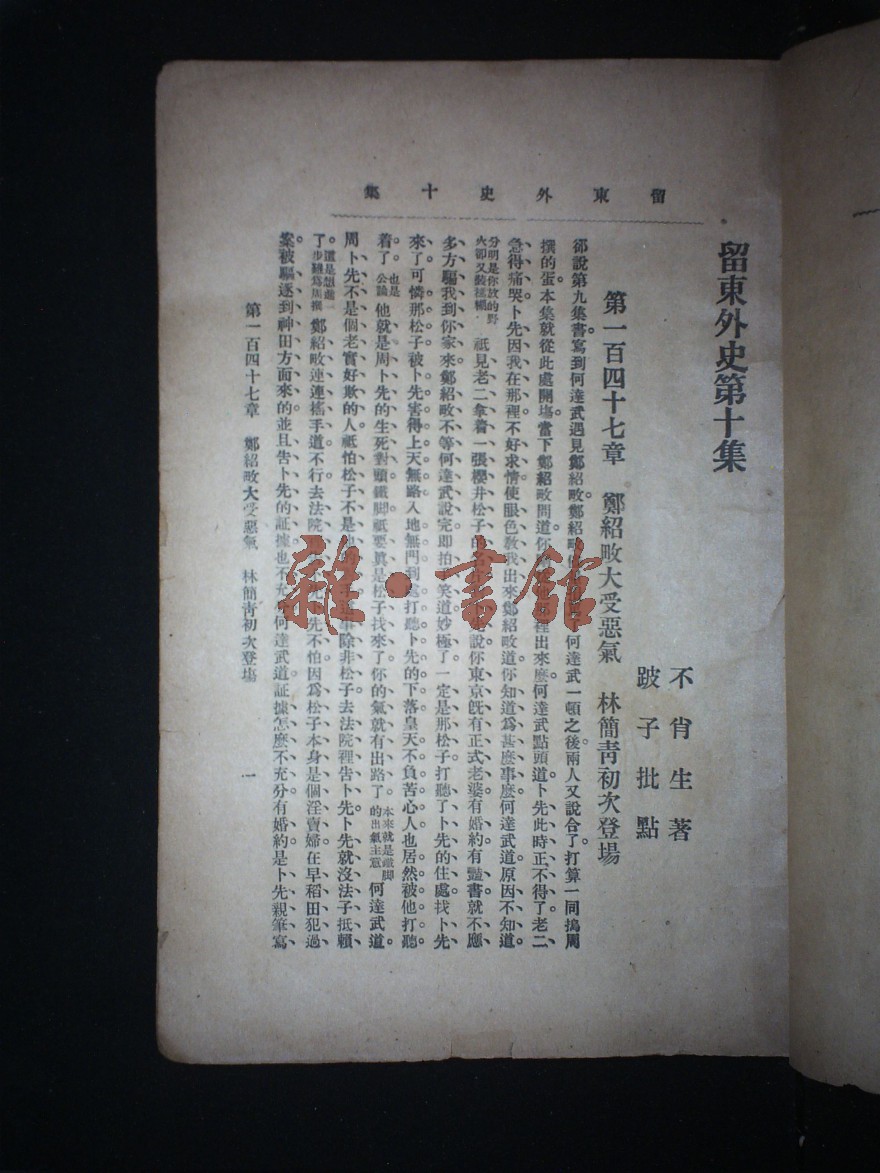 留東外史第十集
不肖生著
跛子批點
留東外史十集
第一百四十七章　鄭紹畋大受惡氣　林簡靑初次登場
卻說第九集書寫到何達武遇見鄭紹畋鄭紹畋何達武一頓之後兩人又說合了打算一同搗周
撰的蛋本集就從此處開塲當下鄭紹畋問道你裡出來麽何達武點頭道卜先此時正不得了老二
急得痛哭卜先因我在那裡不好求情使眼色敎我出來鄭紹畋道你知道爲甚麽事麽何達武道原因不知道
分明是你放的野
火卻又裝糊
祇見老二拿着一張櫻井松子的說你東京旣有正式老婆有婚約有豔書就不應
多方騙我到你家來鄭紹畋不等何達武說完卽拍笑道妙極了一定是那松子打聽了卜先的住處找卜先
來了可憐那松子被卜先害得上天無路入地無門到處打聽卜先的下落皇天不負苦心人也居然被他打聽
着了
也是
公論
他就是周卜先的生死對頭鐵脚祇要眞是松子找來了你的氣就有出路了
本來就是鐵脚
的出氣主意
何達武道
周卜先不是個老實好欺的人祇怕松子不是他除非松子去法院裡告卜先卜先就沒法子抵賴
了
還是想進一
步難爲周撰
鄭紹畋連連搖手道不行去法院先不怕因爲松子本身是個淫賣婦在早稻田犯過
案被驅逐到神田方面來的並且告卜先的証據也不充何達武道証據怎麽不充分有婚約是卜先親筆寫
第一百四十七章　鄭紹畋大受惡氣　林簡靑初次登塲
一
雜·書館